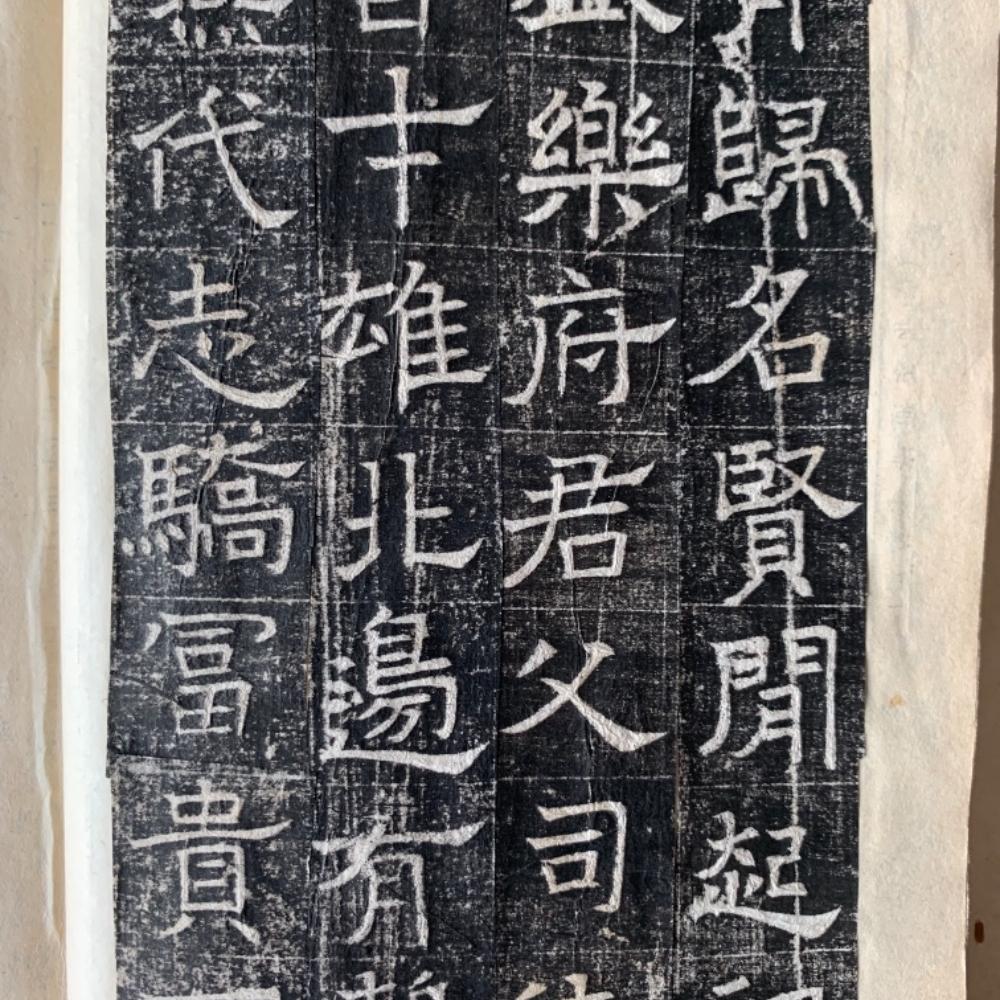 歸名賢閒起
樂府君父司
才雄北邊有
代走驕冨貴